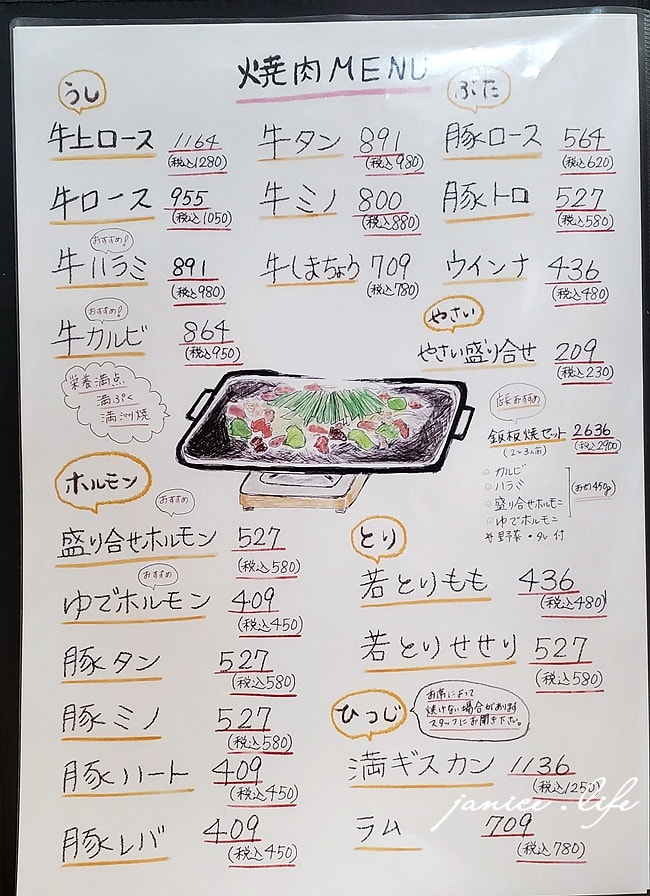 焼肉MENU
うし
牛上ロース 1164
(税込1280)
牛ロース 955
(税込1050)
おすすめ!
牛ハラミ 891
(税込980)
おすすめ!
牛カルビ 864
(税込950)
牛タン 891
(税込980)
牛ミノ 800
(税込880)
牛しまちょう 709
(税込780)
ぶた
豚ロース 564
(税込620)
豚トロ 527
(税込580)
ウインナ 436
(税込480)
やさい
やさい盛り合せ 209
(税込230)
栄養満点
満ぷく
満洲焼
店長おすすめ
鉄板焼セット 2636
(2~3人前) (税込2900)
○カルビ
○ハラミ
○盛り合せホルモン
○ゆでホルモン
(お肉450g)
#野菜・タレ付
ホルモン
おすすめ
盛り合せホルモン 527
(税込580)
おすすめ
ゆでホルモン 409
(税込450)
豚タン 527
(税込580)
豚ミノ 527
(税込580)
豚ハート 409
(税込450)
豚レバ 409
(税込450)
とり
若とりもも 436
(税込480)
若とりせせり 527
(税込580)
ひつじ
お席によって
焼けない場合があります
スタッフにお聞き下さい。
満ギスカン 1136
(税込1250)
ラム 709
(税込780)
janice.life